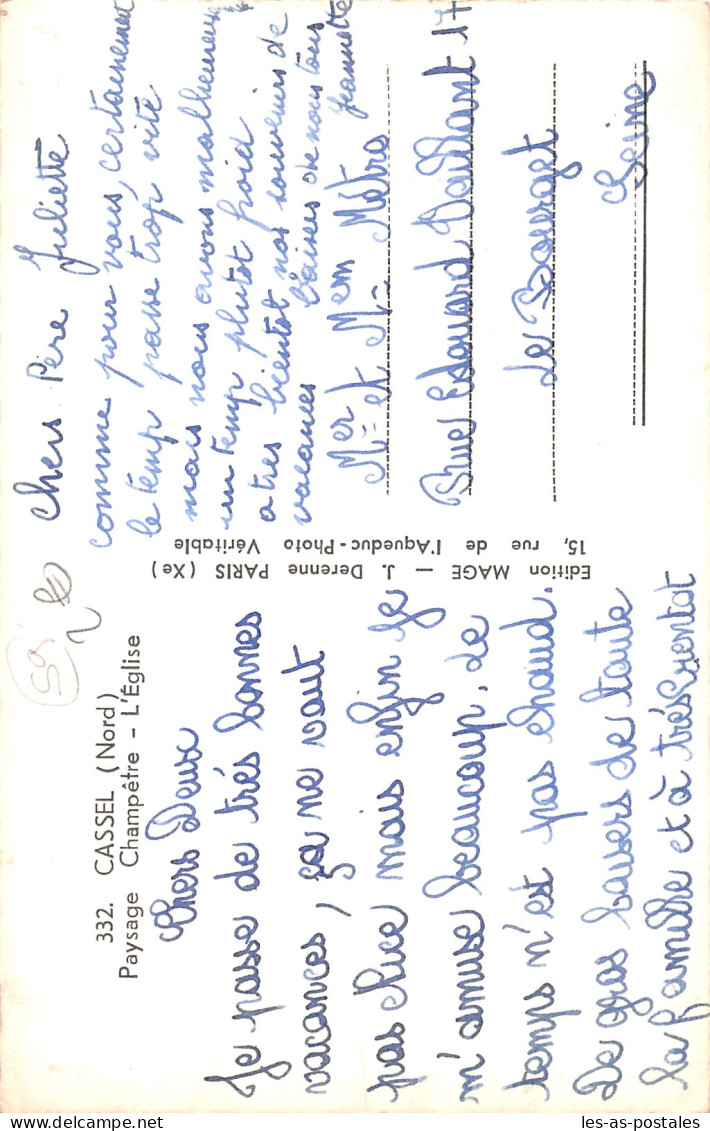 332. CASSEL (Nord)
Paysage Champêtre - L'Église
Chers Deux
Je passe de trés bonnes
vacances, ça ne vaut
pas chice mais enfin je
m'amuse beaucoup. Le
temps n'est pas chaud.
De gros baisers de toute
la famille et à très bientot
Edition MAGE — J. Derenne PARIS (Xe)
15, rue de l'Aqueduc - Photo Véritable
Chers Père Juliette
comme pour vous, certainement
le temp passe trop vite
mais nous avons malheureus
un temp plutot froid
a tres bientot nos souvenirs de
vacances baises de nous tous
Jeannette
Mer et Mem Métro
Rue Edouard Vaillant 17
Le Bourget
Seine
les-as-postales